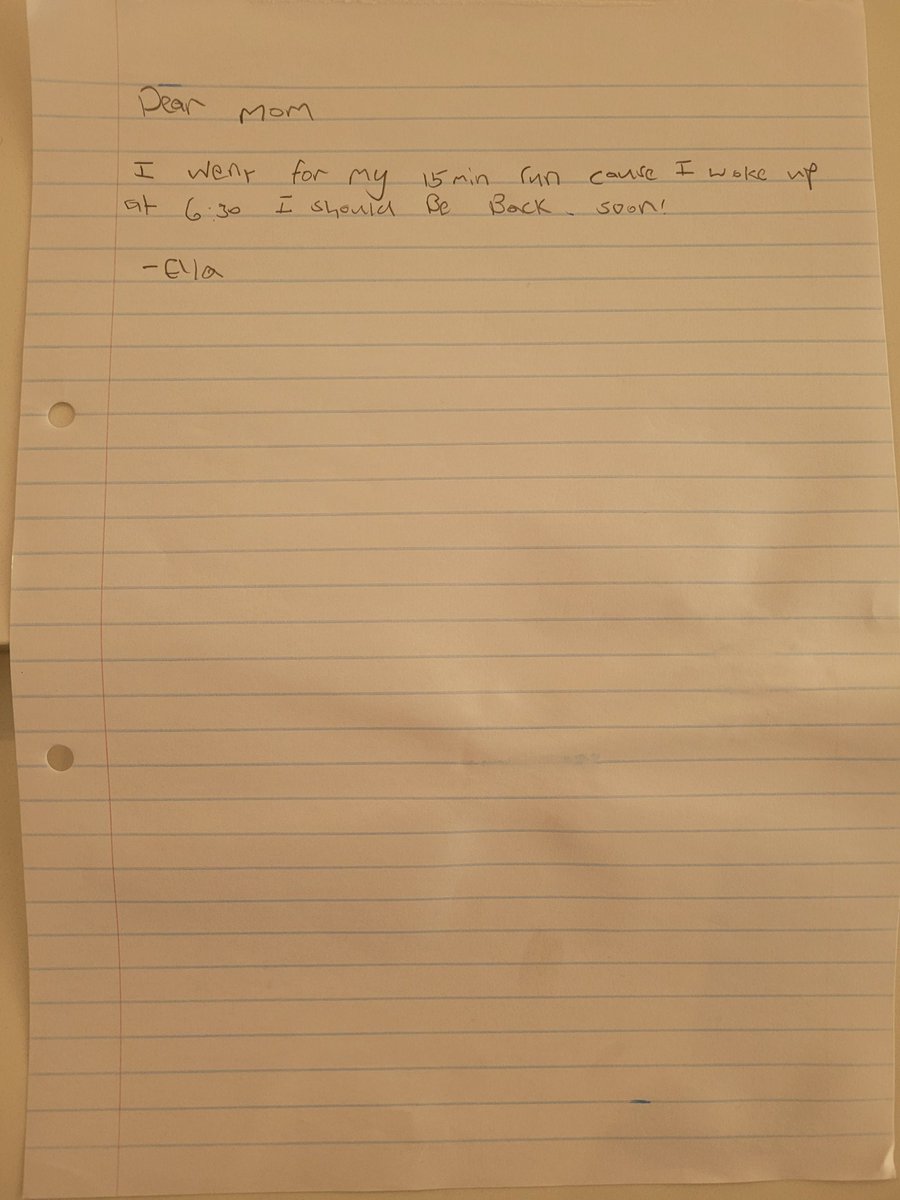 Dear Mom
I went for my 15 min run cause I woke up
at 6:30 I should Be Back. soon!
-Ella